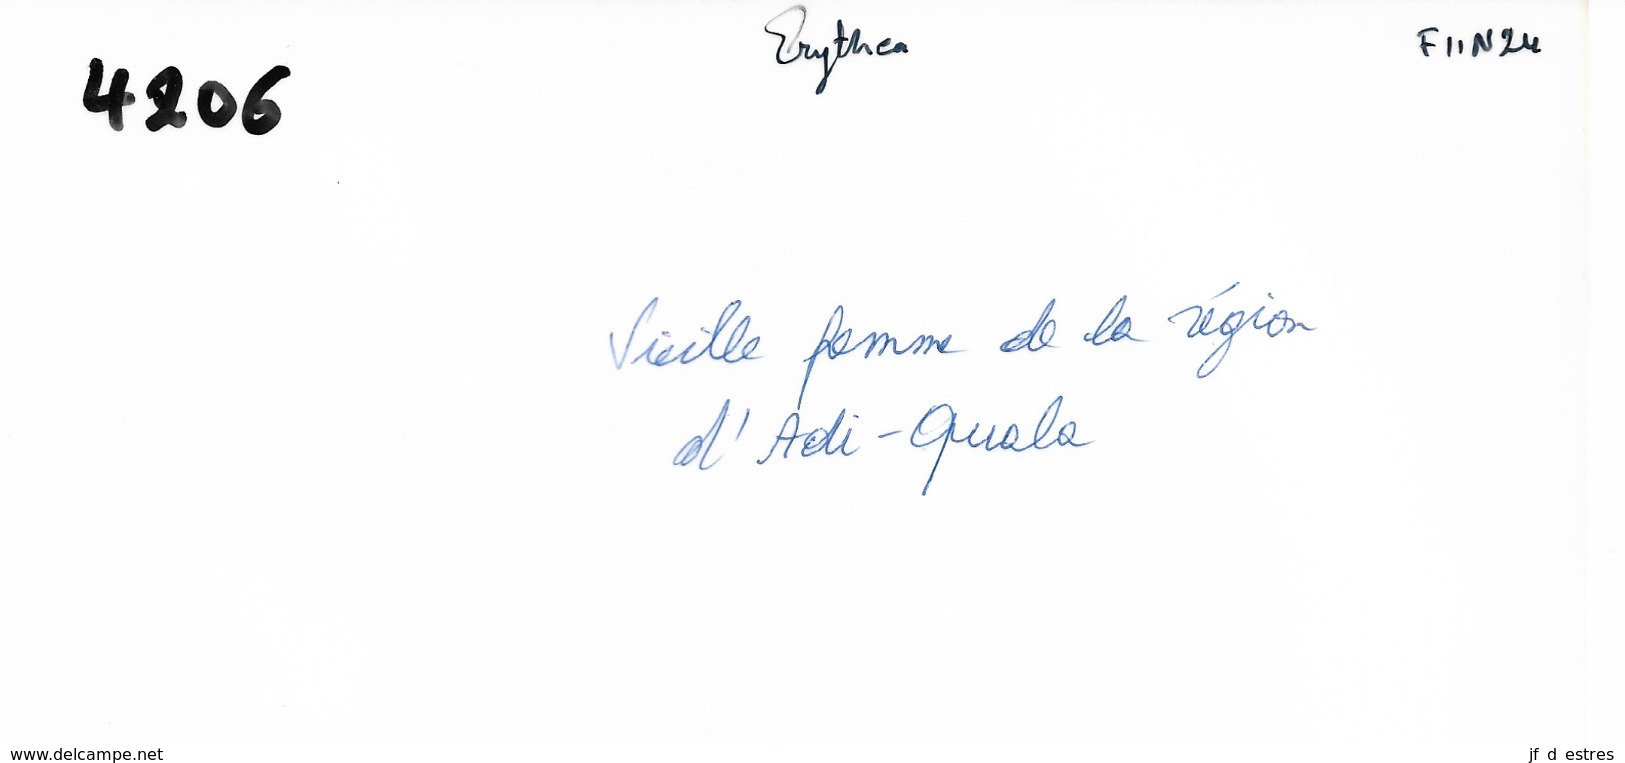 Erythea
F11N24
4206
Vieille femme de la région
d'Adi-Quala
www.delcampe.net
jf d estres